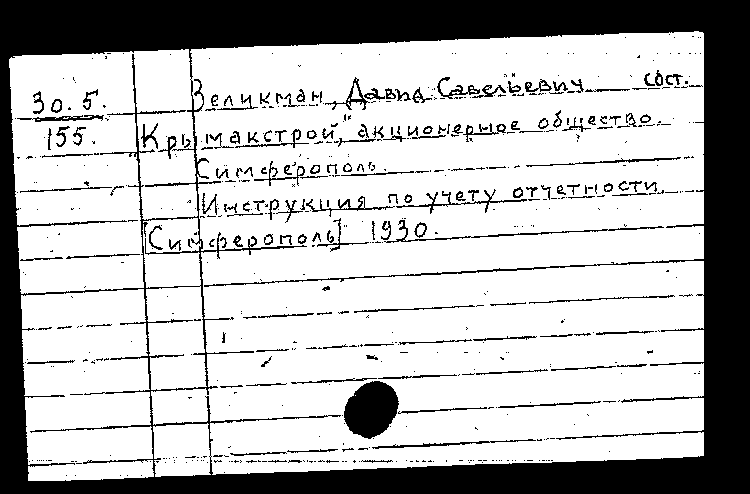 30.5. Зеликман, Давид Савельевич сост.
155. "Крымакстрой," акционерное общество.
Симферополь.
Инструкция по учету отчетности.
[Симферополь] 1930.